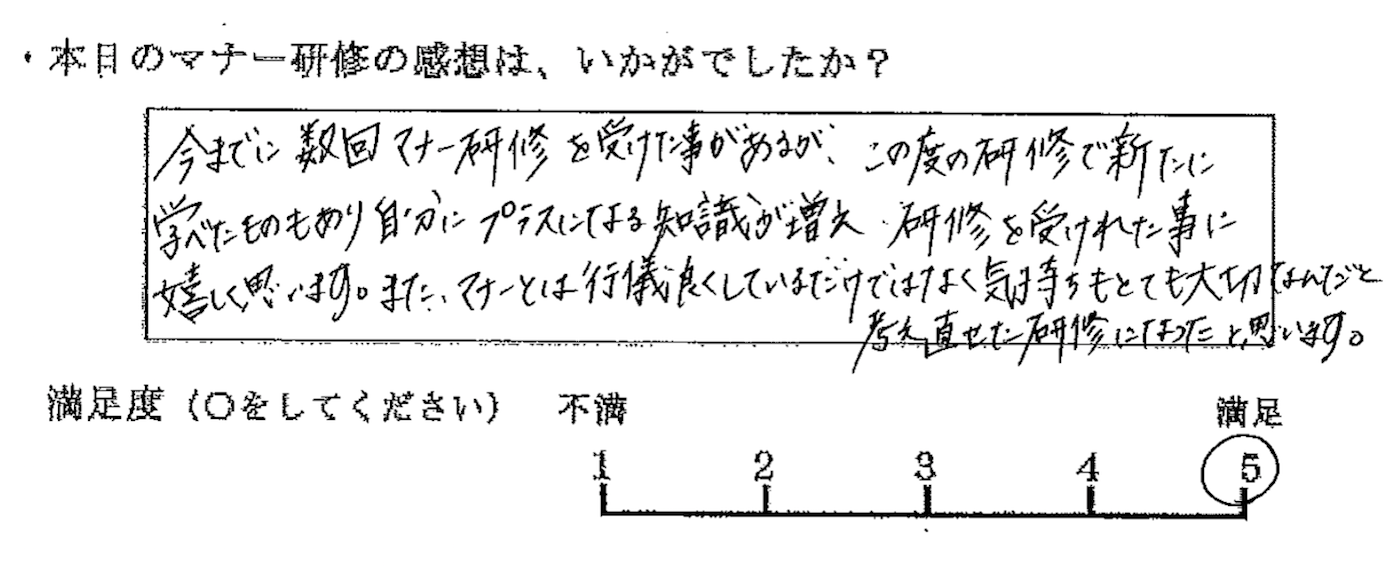 ・本日のマナー研修の感想は、いかがでしたか？
今までに数回マナー研修を受けた事があるが、この度の研修で新たに
学べたものもあり自分にプラスになる知識が増え研修を受けれた事に
嬉しく思います。また、マナーとは行儀良くしているだけではなく気持ちもとても大切なんだと
考え直せた研修になったと思います。
満足度（〇をしてください） 不満 満足
1 2 3 4 5